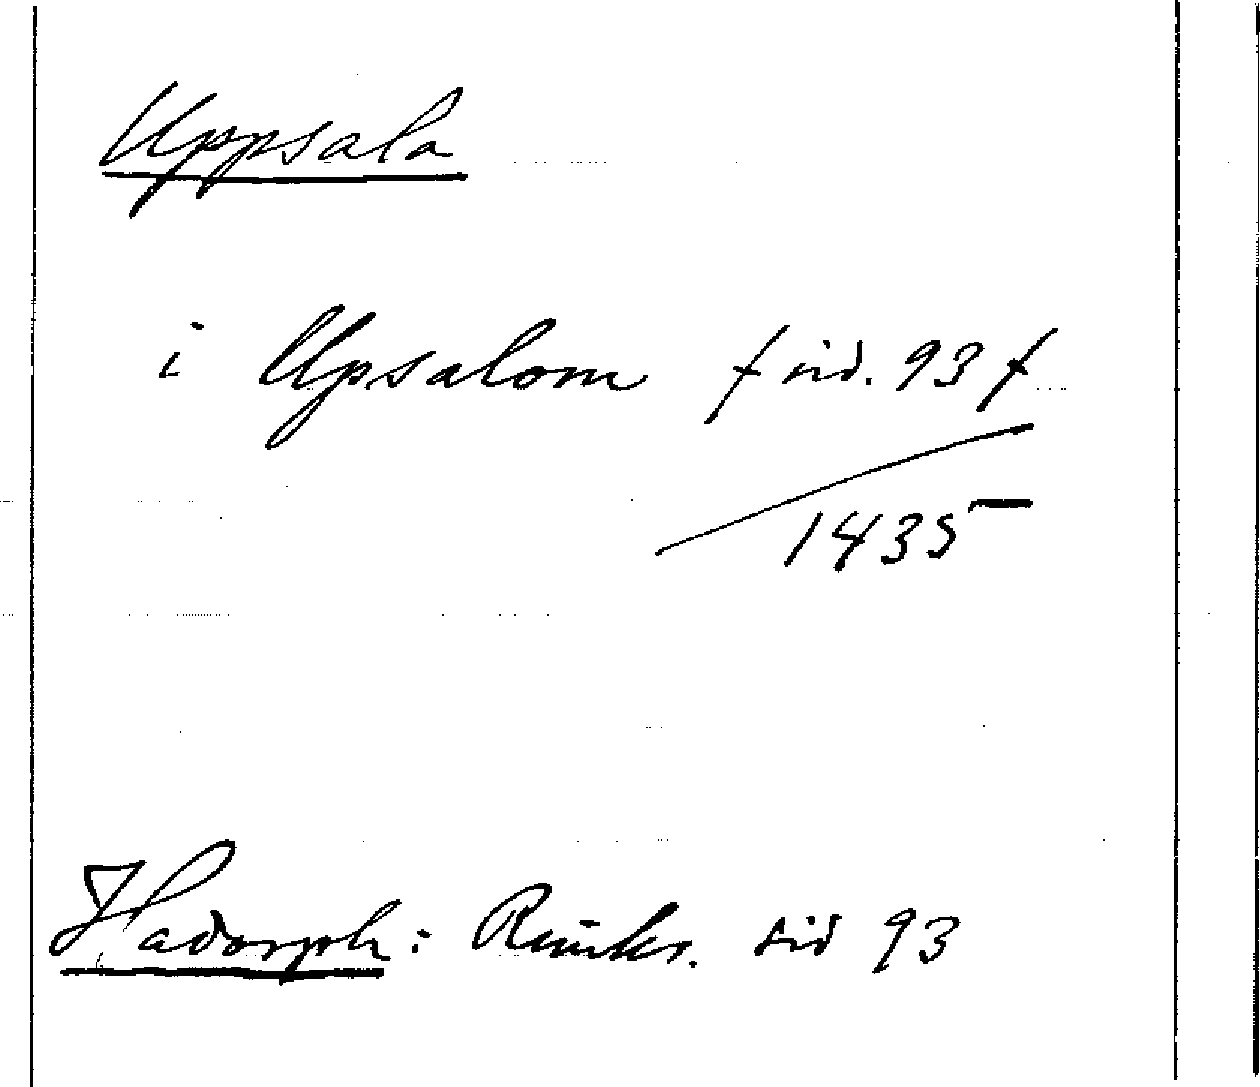 Uppsala
i Upsalom / sid. 93 /
1435
Hadorph: Rimkr. sid 93